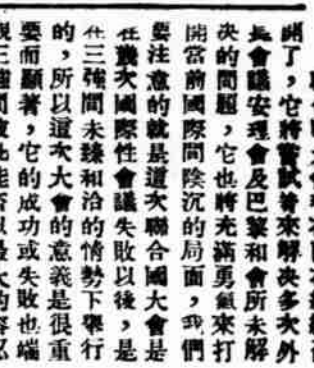 開了，它將嘗試着來解决多次外
長會議安理會及巴黎和會所未解
决的問題，它也將充滿勇氣來打
開當前國際間陰沉的局面，我們
要注意的就是這次聯合國大會是
在幾次國際性會議失敗以後，是
在三強間未臻和洽的情勢下舉行
的，所以這次大會的意義是很重
要而顯著，它的成功或失敗也端
視三強間彼此能否以最大的容忍